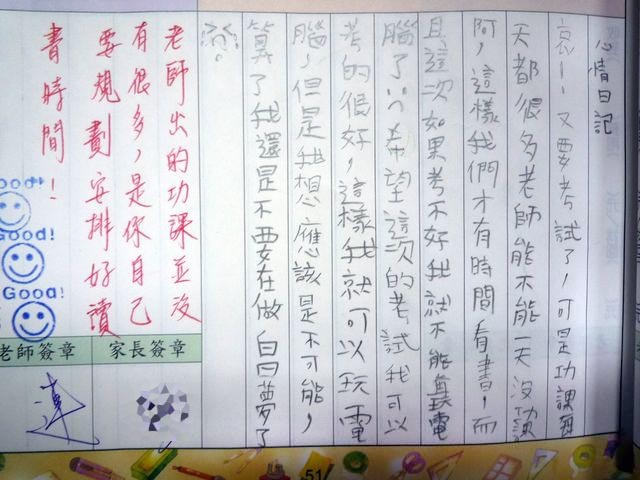 心情日記
哀!!又要考試了,可是功課每
天都很多老師能不能一天沒功課
阿,這樣我們才有時間看書,而
且這次如果考不好我就不能玩電
腦了 希望這次的考試我可以
考的很好,這樣我就可以玩電
腦,但是我想應該是不可能,
算了我還是不要在做白日夢了
老師出的功課並沒
有很多,是你自己
要規劃安排好讀
書時間!
Good!
Good!
Good!
家長簽章
老師簽章
51